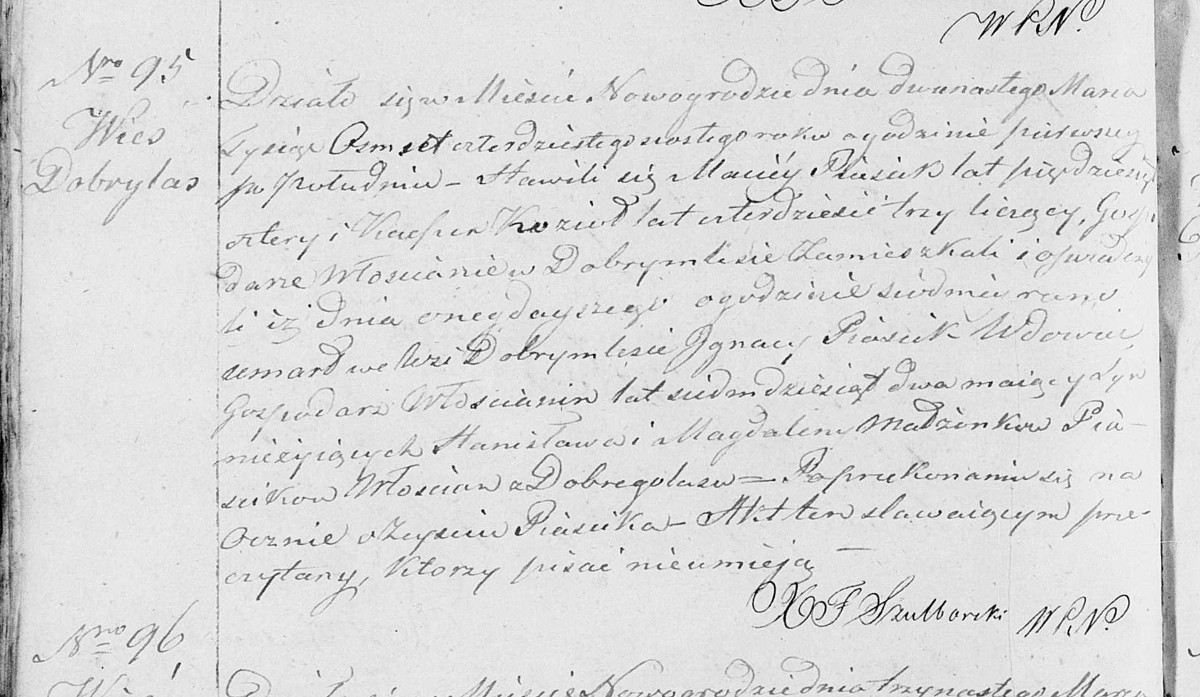 W P.N.
Nro 95
Wies
Dobrylas
Działo się w Mieście Nowogrodzie dnia dwunastego Marca
Tysiąc Osmset czterdziestego szostego roku o godzinie pierwszey
po Południu – Stawili się Maciey Piascik lat pięćdziesiąt
cztery i Kacper Kozioł lat czterdzieści trzy liczący, Gospo
darze Włoscianie w Dobrymlesie Zamieszkali i oswiadczy
li iż dnia onegdayszego o godzinie siodmey rano
umarł we Wsi Dobrymlesie Ignacy Piascik Wdowiec
Gospodarz Włoscianin lat siedmdziesiąt dwa maiący Syn
nieżyiących Stanisława i Magdaleny Małzonkow Pia–
scikow Włoscian z Dobregolasu – Po przekonaniu się na
Ocznie o Zeysciu Piascika – Akt ten stawaiącym prze
czytany, ktorzy pisac nieumieią –
X F Szulborski W P.N.
Nro 96
Wieś
Działo się w Mieście Nowogrodzie dnia trzynastego Marca